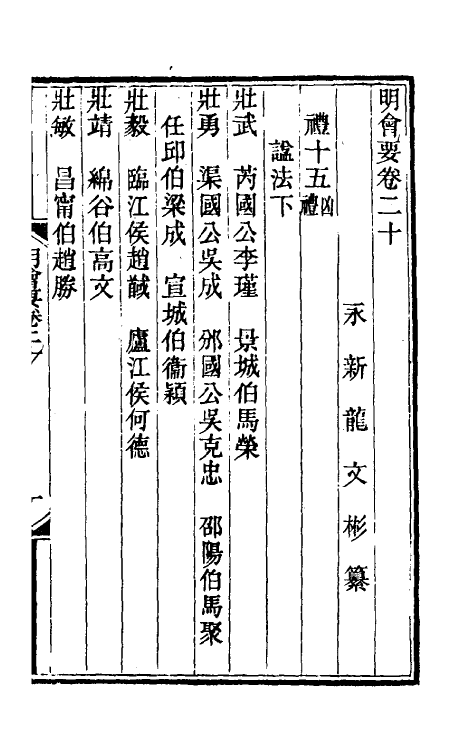 明會要卷二十
永新龍文彬纂
禮十五凶禮
諡法下
壯武 芮國公李瑾 景城伯馬榮
壯勇 渠國公吳成 邠國公吳克忠 邵陽伯馬聚
任邱伯梁成 宣城伯衞潁
壯毅 臨江侯趙 盧江侯何德
壯靖 綿谷伯高文
壯敏 昌甯伯趙勝
明會要卷二十
一